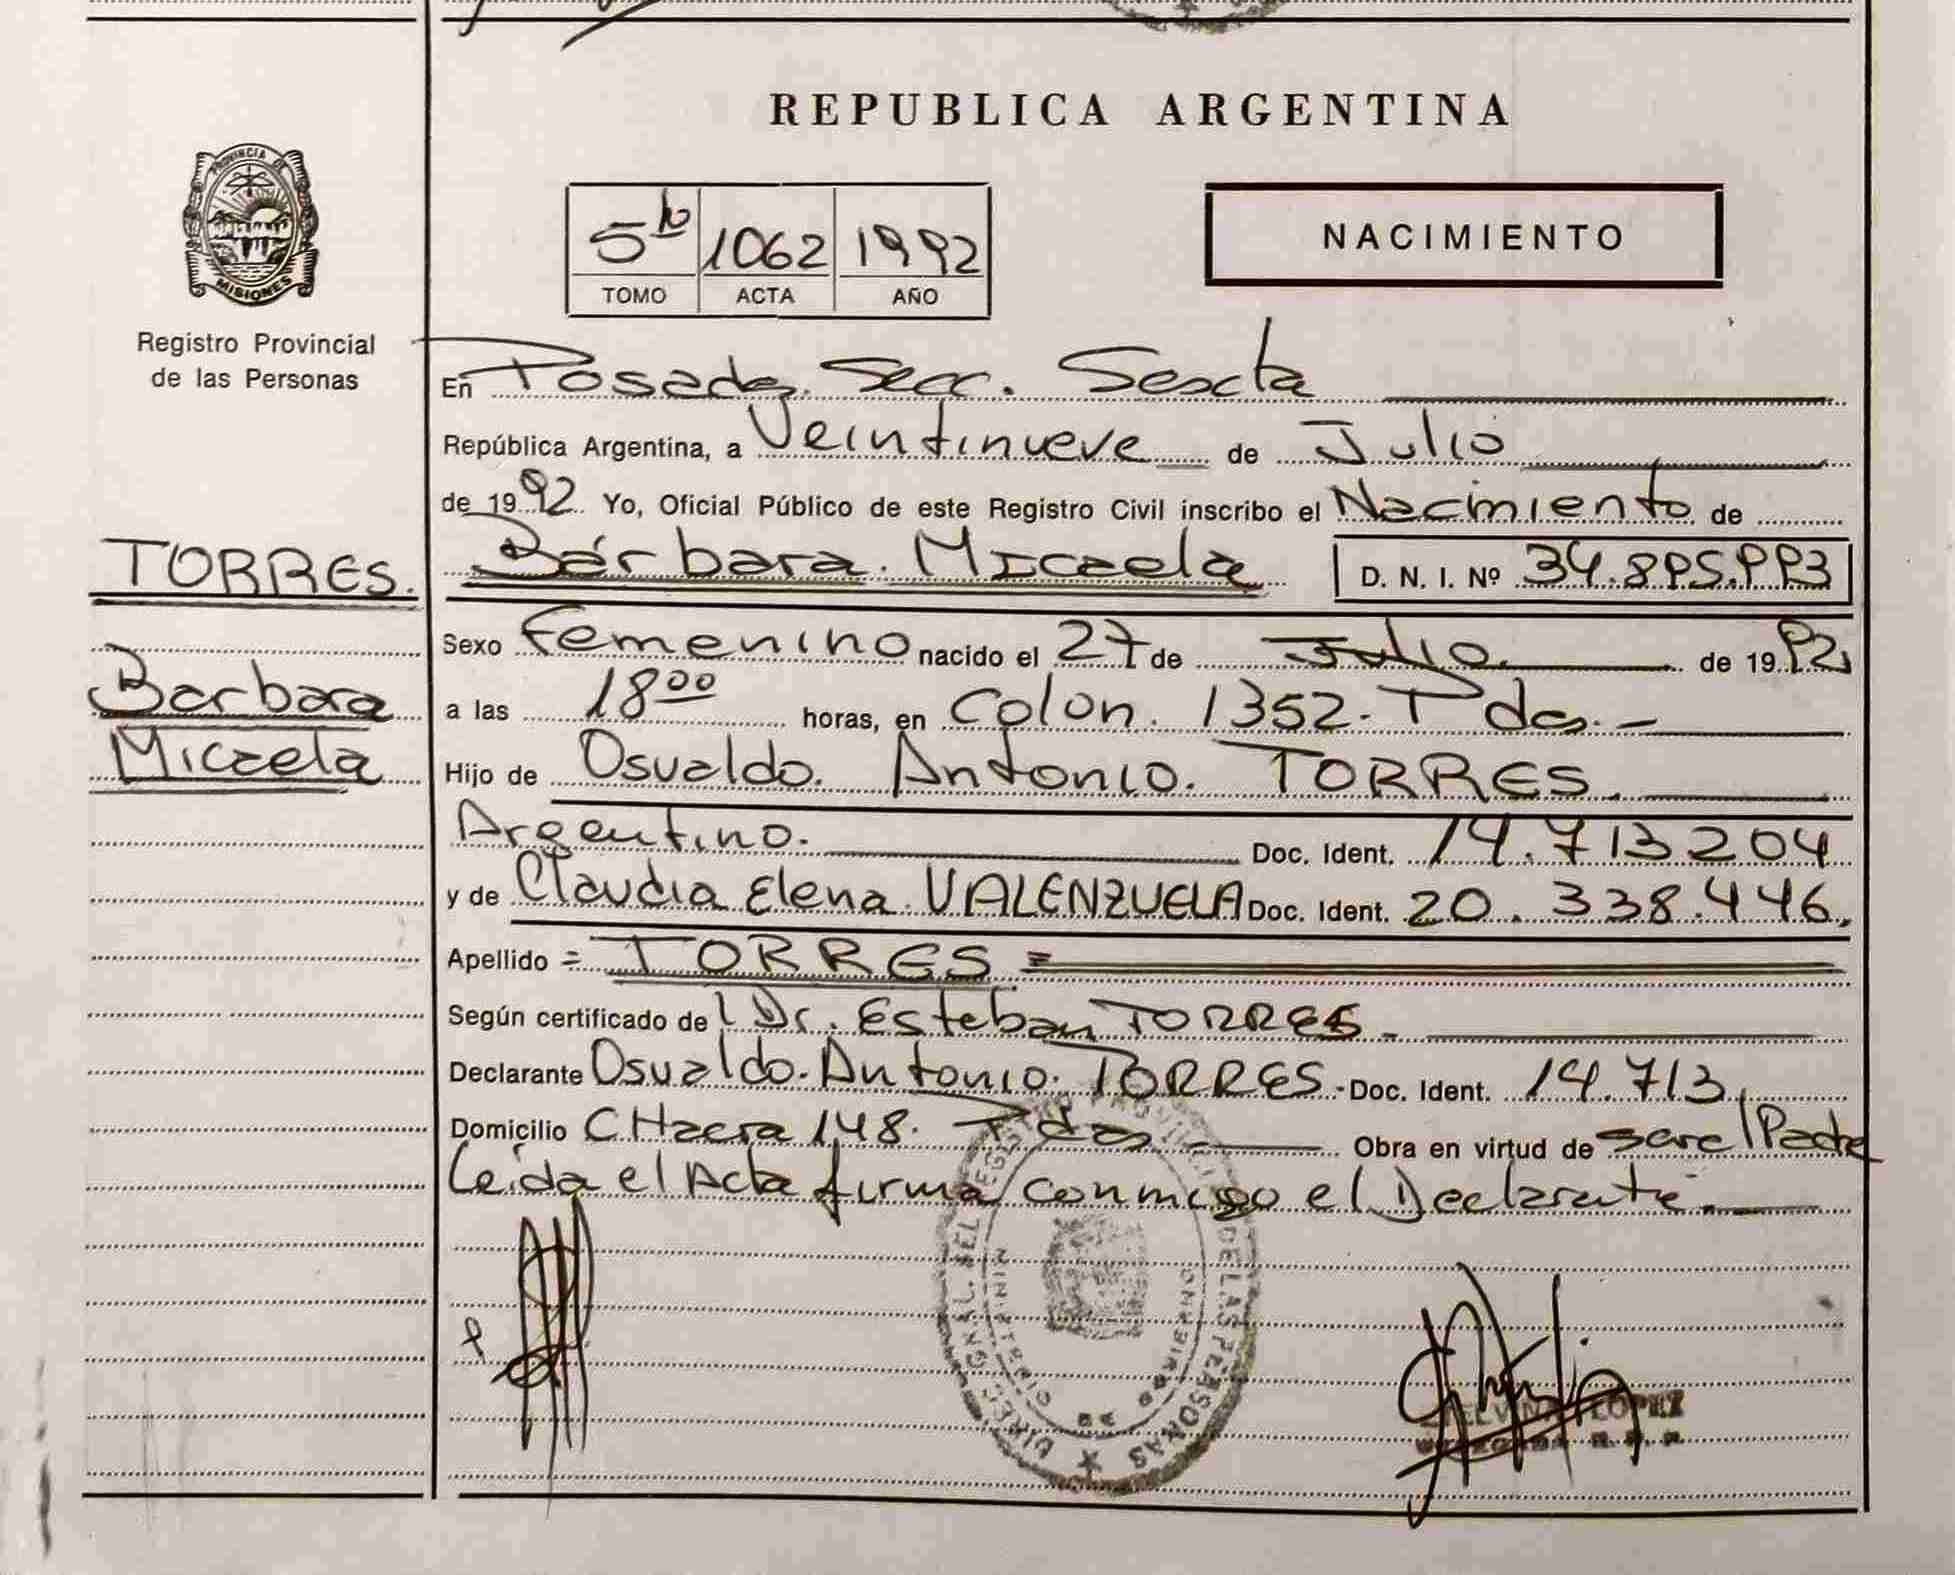 REPUBLICA ARGENTINA
PROVINCIA DE
MISIONES
Registro Provincial
de las Personas
5to 1062 1992
TOMO ACTA AÑO
NACIMIENTO
En Posadas. Secc. Sexta
República Argentina, a Veintinueve de Julio
de 1992 Yo, Oficial Público de este Registro Civil inscribo el Nacimiento de
TORRES.
Bárbara. Micaela D. N. I. Nº 34.895.993
Sexo Femenino nacido el 27 de Julio. de 1992
Barbara
Micaela
a las 18 00 horas, en Colon. 1352. Pdas. -
Hijo de Osvaldo. Antonio. TORRES.
Argentino. Doc. Ident. 14.713204
y de Claudia Elena. VALENZUELA Doc. Ident. 20.338.446.
Apellido = TORRES =
Según certificado de l Dr. Esteban TORRES -
Declarante Osvaldo. Antonio. TORRES.- Doc. Ident. 14.713.
Domicilio CHacra 148. Pdas Obra en virtud de ser el Padre
Leída el Acta firma conmigo el Declarante.
DE LAS PERSONAS
LOPEZ